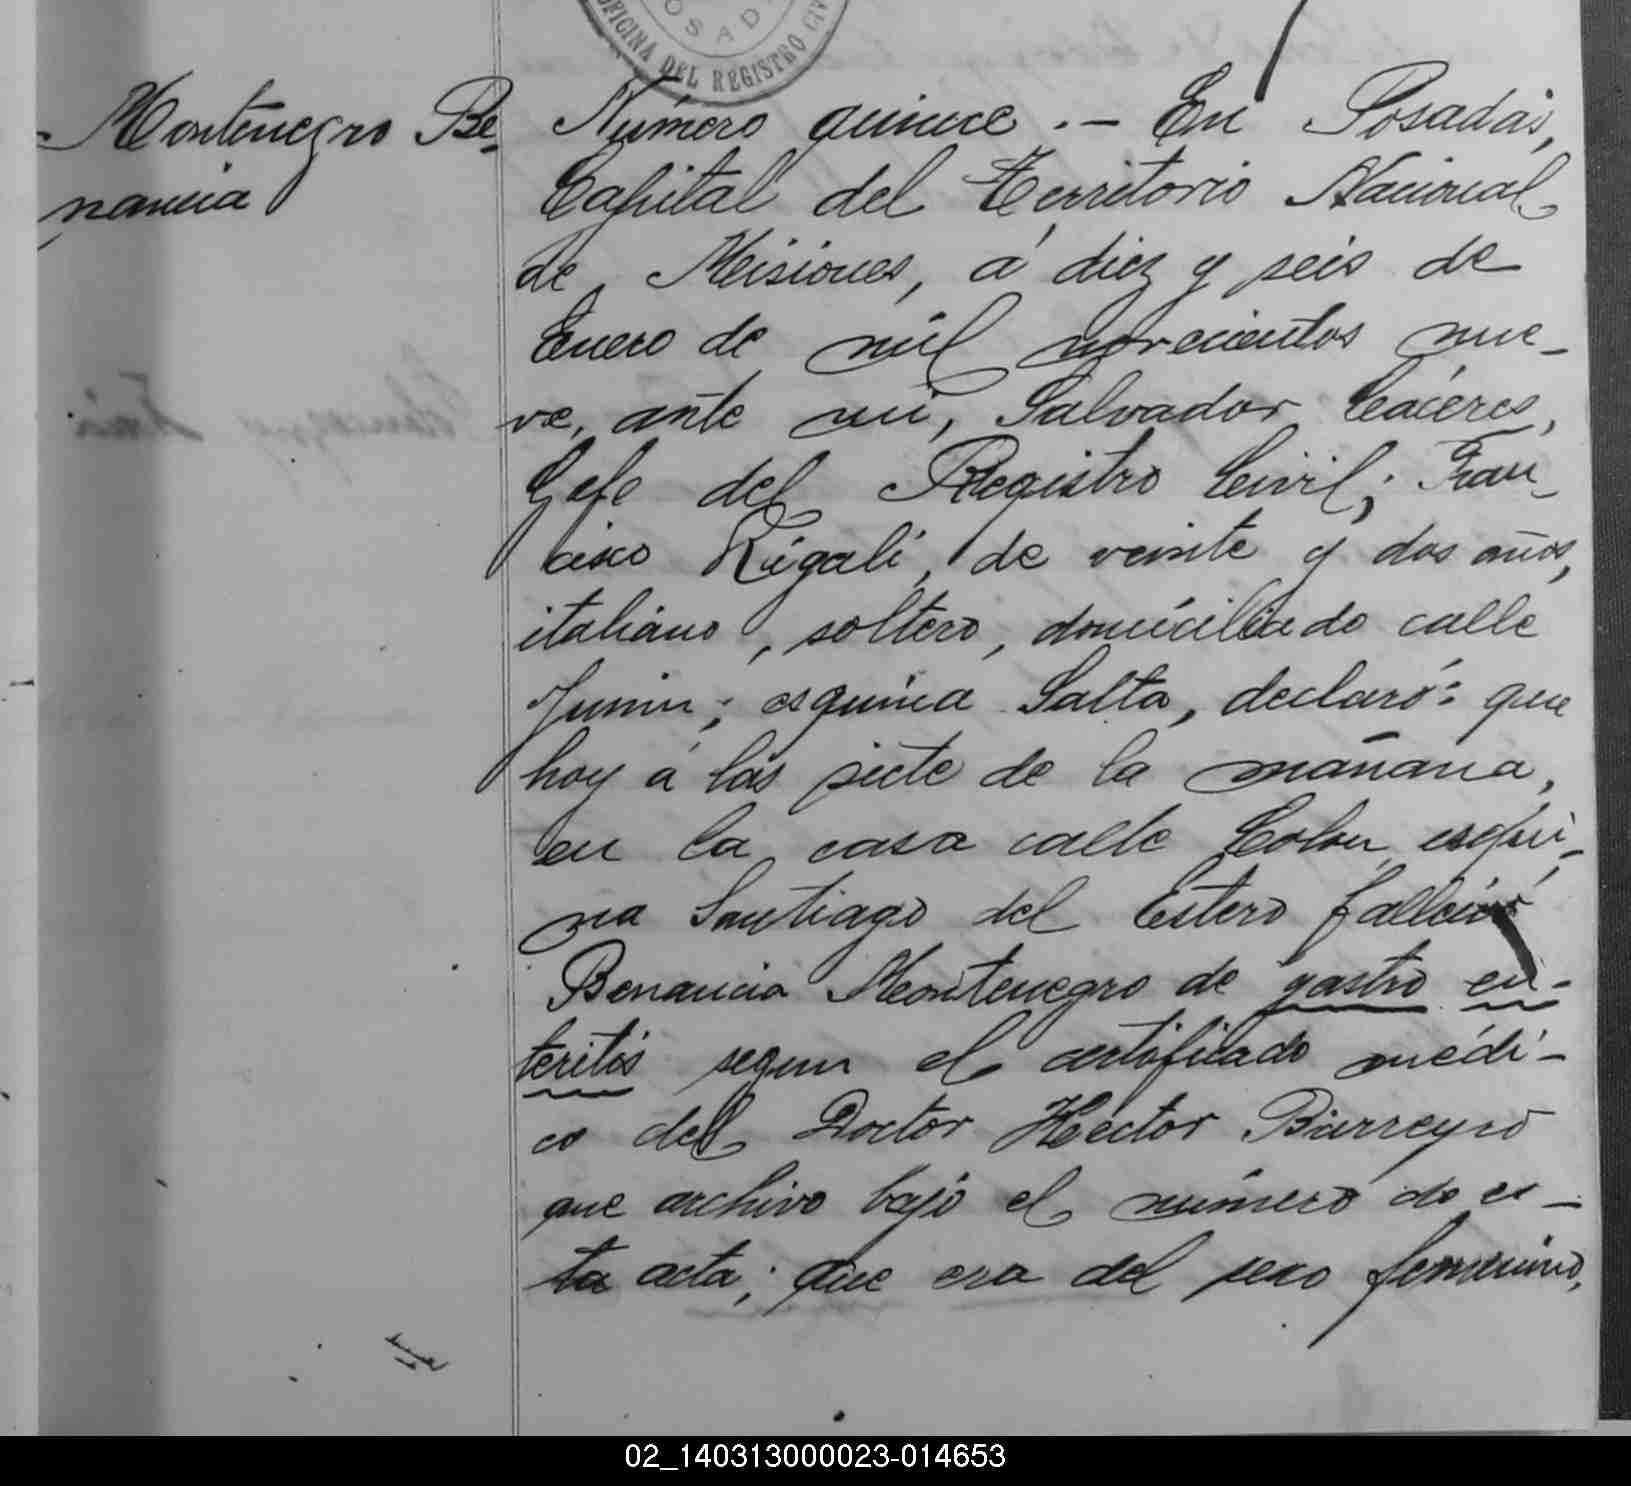 OSAD
OFICINA DEL REGISTRO CIV
Montenegro Be-
nancia
Número quince .- En Posadas,
Capital del Territorio Nacional
de Misiones, á diez y seis de
Enero de mil novecientos nue-
ve, ante mi, Salvador Cáceres,
Gefe del Registro Civil; Fran-
cisco Rigali, de veinte y dos años,
italiano, soltero, domiciliado calle
Junin; esquina Salta, declaró: que
hoy á las siete de la mañana,
en la casa calle Colon esqui-
na Santiago del Estero falleció
Benancia Montenegro de gastro en-
teritis segun el certificado médi-
co del Doctor Héctor Barreyro
que archivo bajo el número de es-
ta acta; que era del sexo femenino,
02_140313000023-014653